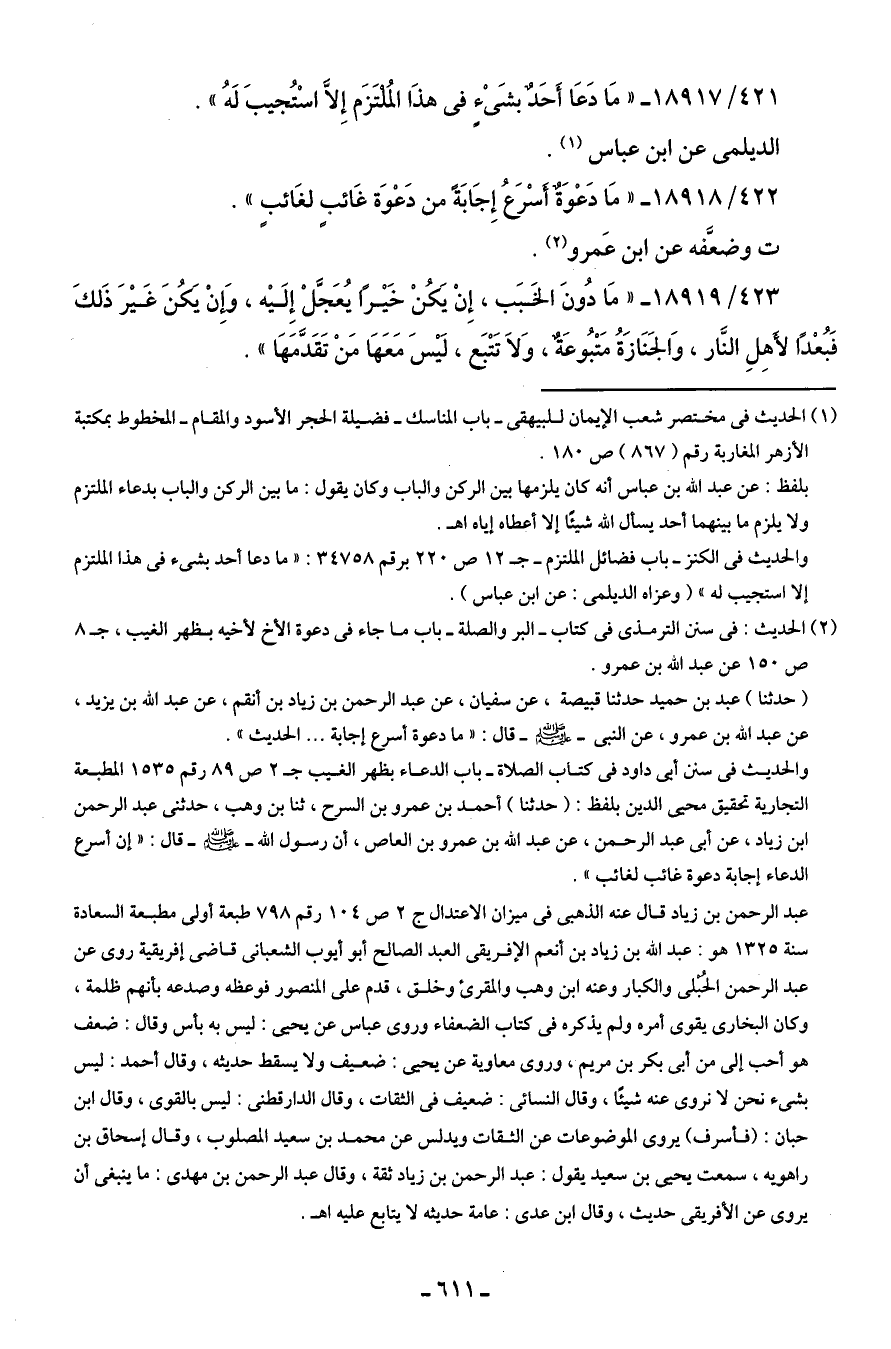 ٤٢١/ ١٨٩١٧ـ « مَا دَعَا أَحَدٌ بشَىْءٍ فى هذَا المُلْتَزَم إِلاَّ اسْتُجيبَ لَهُ » .
الديلمى عن ابن عباس (١) .
٤٢٢/ ١٨٩١٨ـ « مَا دَعْوَةٌ أَسْرَعُ إِجَابَةً من دَعْوَة غَائبٍ لغَائبٍ » .
ت وضعَّفه عن ابن عَمرو(٢) .
٤٢٣/ ١٨٩١٩ـ « مَا دُونَ الخَبَب ، إِنْ يَكُنْ خَيْرًا يُعَجَّلْ إِلَيْه ، وَإِنْ يَكُنْ غَيْرَ ذَلكَ
فَبُعْدًا لأَهلِ النَّار ، وَالجَنَازَةُ مَتْبُوعَةٌ ، وَلاَ تَتْبَع ، لَيْسَ مَعَهَا مَنْ تَقَدَّمَهَا » .
(١) الحديث فى مختصر شعب الإيمان للبيهقى ـ باب المناسك ـ فضيلة الحجر الأسود والمقام ـ المخطوط بمكتبة
الأزهر المغاربة رقم ( ٨٦٧ ) ص ١٨٠ .
بلفظ : عن عبد الله بن عباس أنه كان يلزمها بين الركن والباب وكان يقول : ما بين الركن والباب بدعاء الملتزم
ولا يلزم ما بينهما أحد يسأل الله شيئًا إلا أعطاه إياه اهـ .
والحديث فى الكنز ـ باب فضائل الملتزم ـ جـ ١٢ ص ٢٢٠ برقم ٣٤٧٥٨ : « ما دعا أحد بشىء فى هذا الملتزم
إلا استجيب له » ( وعزاه الديلمى : عن ابن عباس ) .
(٢) الحديث : فى سنن الترمذى فى كتاب ـ البر والصلة ـ باب ما جاء فى دعوة الأخ لأخيه بظهر الغيب ، جـ ٨
ص ١٥٠ عن عبد الله بن عمرو .
( حدثنا ) عبد بن حميد حدثنا قبيصة ، عن سفيان ، عن عبد الرحمن بن زياد بن أنقم ، عن عبد الله بن يزيد ،
عن عبد الله بن عمرو ، عن النبى ـ ﷺ ـ قال : « ما دعوة أسرع إجابة ... الحديث » .
والحديث فى سنن أبى داود فى كتاب الصلاة ـ باب الدعاء بظهر الغيب جـ ٢ ص ٨٩ رقم ١٥٣٥ المطبعة
التجارية تحقيق محيى الدين بلفظ : ( حدثنا ) أحمد بن عمرو بن السرح ، ثنا بن وهب ، حدثنى عبد الرحمن
ابن زياد ، عن أبى عبد الرحمن ، عن عبد الله بن عمرو بن العاص ، أن رسول الله ـ ﷺ ـ قال : « إن أسرع
الدعاء إجابة دعوة غائب لغائب » .
عبد الرحمن بن زياد قال عنه الذهبى فى ميزان الاعتدال ج ٢ ص ١٠٤ رقم ٧٩٨ طبعة أولى مطبعة السعادة
سنة ١٣٢٥ هو : عبد الله بن زياد بن أنعم الإفريقى العبد الصالح أبو أيوب الشعبانى قاضى إفريقية روى عن
عبد الرحمن الحُبْلى والكبار وعنه ابن وهب والمقرئ وخلق ، قدم على المنصور فوعظه وصدعه بأنهم ظلمة ،
وكان البخارى يقوى أمره ولم يذكره فى كتاب الضعفاء وروى عباس عن يحيى : ليس به بأس وقال : ضعف
هو أحب إلى من أبى بكر بن مريم ، وروى معاوية عن يحيى : ضعيف ولا يسقط حديثه ، وقال أحمد : ليس
بشىء نحن لا نروى عنه شيئًا ، وقال النسائى : ضعيف فى الثقات ، وقال الدارقطنى : ليس بالقوى ، وقال ابن
حبان : (فأسرف) يروى الموضوعات عن الثقات ويدلس عن محمد بن سعيد المصلوب ، وقال إسحاق بن
راهويه ، سمعت يحيى بن سعيد يقول : عبد الرحمن بن زياد ثقة ، وقال عبد الرحمن بن مهدى : ما ينبغى أن
يروى عن الأفريقى حديث ، وقال ابن عدى : عامة حديثه لا يتابع عليه اهـ .
ـ ٦١١ ـ